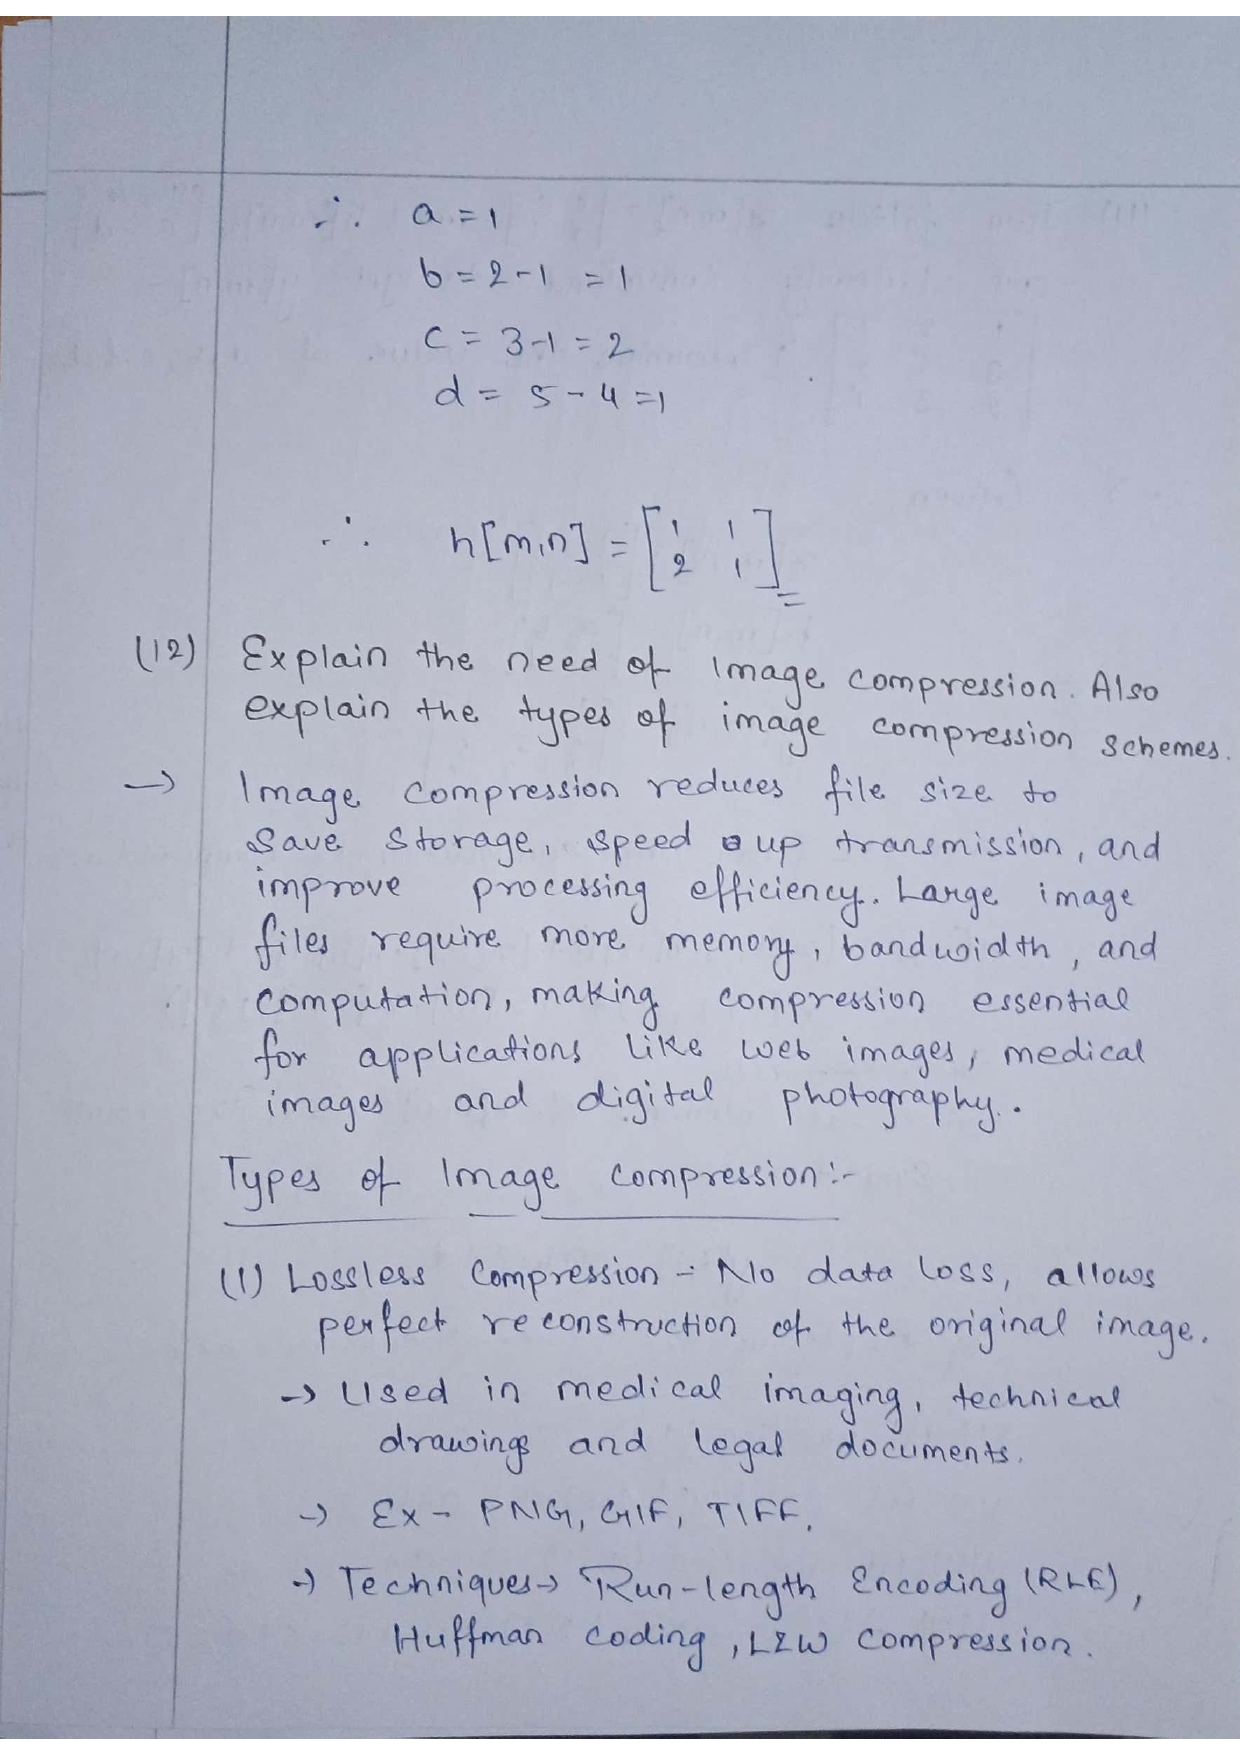 ∴ a = 1
b = 2-1 = 1
c = 3-1 = 2
d = 5-4 = 1
∴ h[m,n] = [1 1
2 1]
(12) Explain the need of Image compression. Also
explain the types of image compression schemes.
→ Image compression reduces file size to
save storage, speed up transmission, and
improve processing efficiency. Large image
files require more memory, bandwidth, and
computation, making compression essential
for applications like web images, medical
images and digital photography.
Types of Image compression:-
(1) Lossless Compression - No data loss, allows
perfect reconstruction of the original image.
→ Used in medical imaging, technical
drawings and legal documents.
→ Ex - PNG, GIF, TIFF.
→ Techniques → Run-length Encoding (RLE),
Huffman coding, LZW compression.